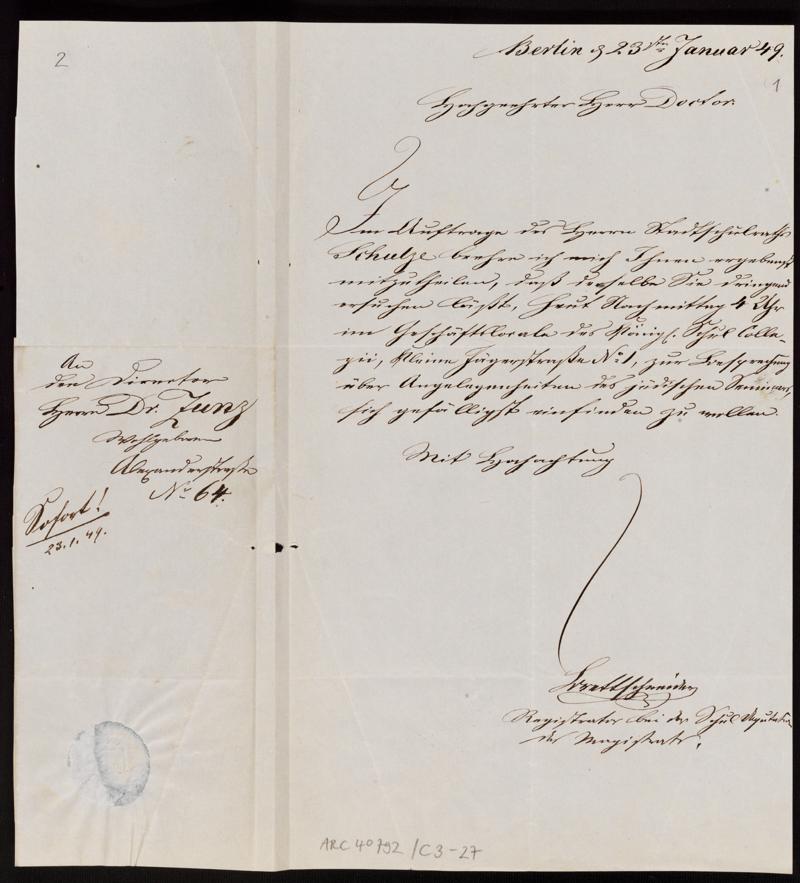 2
Berlin d 23ten Januar 49.
1
Hochgeehrter Herr Doctor.
Im Auftrage des Herrn Stadtschulraths
Schulze beehre ich mich Ihnen ergebenst
mitzutheilen, daß derselbe Sie dringend
ersuchen läßt, heut Nachmittag 4 Uhr
im Geschäftslocale des Königl. Schul Colle-
gii, Kleine Jägerstraße No 1, zur Besprechung
über Angelegenheiten des jüdischen Seminars,
sich gefälligst einfinden zu wollen.
Mit Hochachtung
Brettschneider
Registrator bei der Schul Deputation
des Magistrats.
An
den Director
Herrn Dr. Zunz
Wohlgeboren
Alexanderstraße
No 64.
Sofort!
23.1.49.
ARC 40792 /C3-27